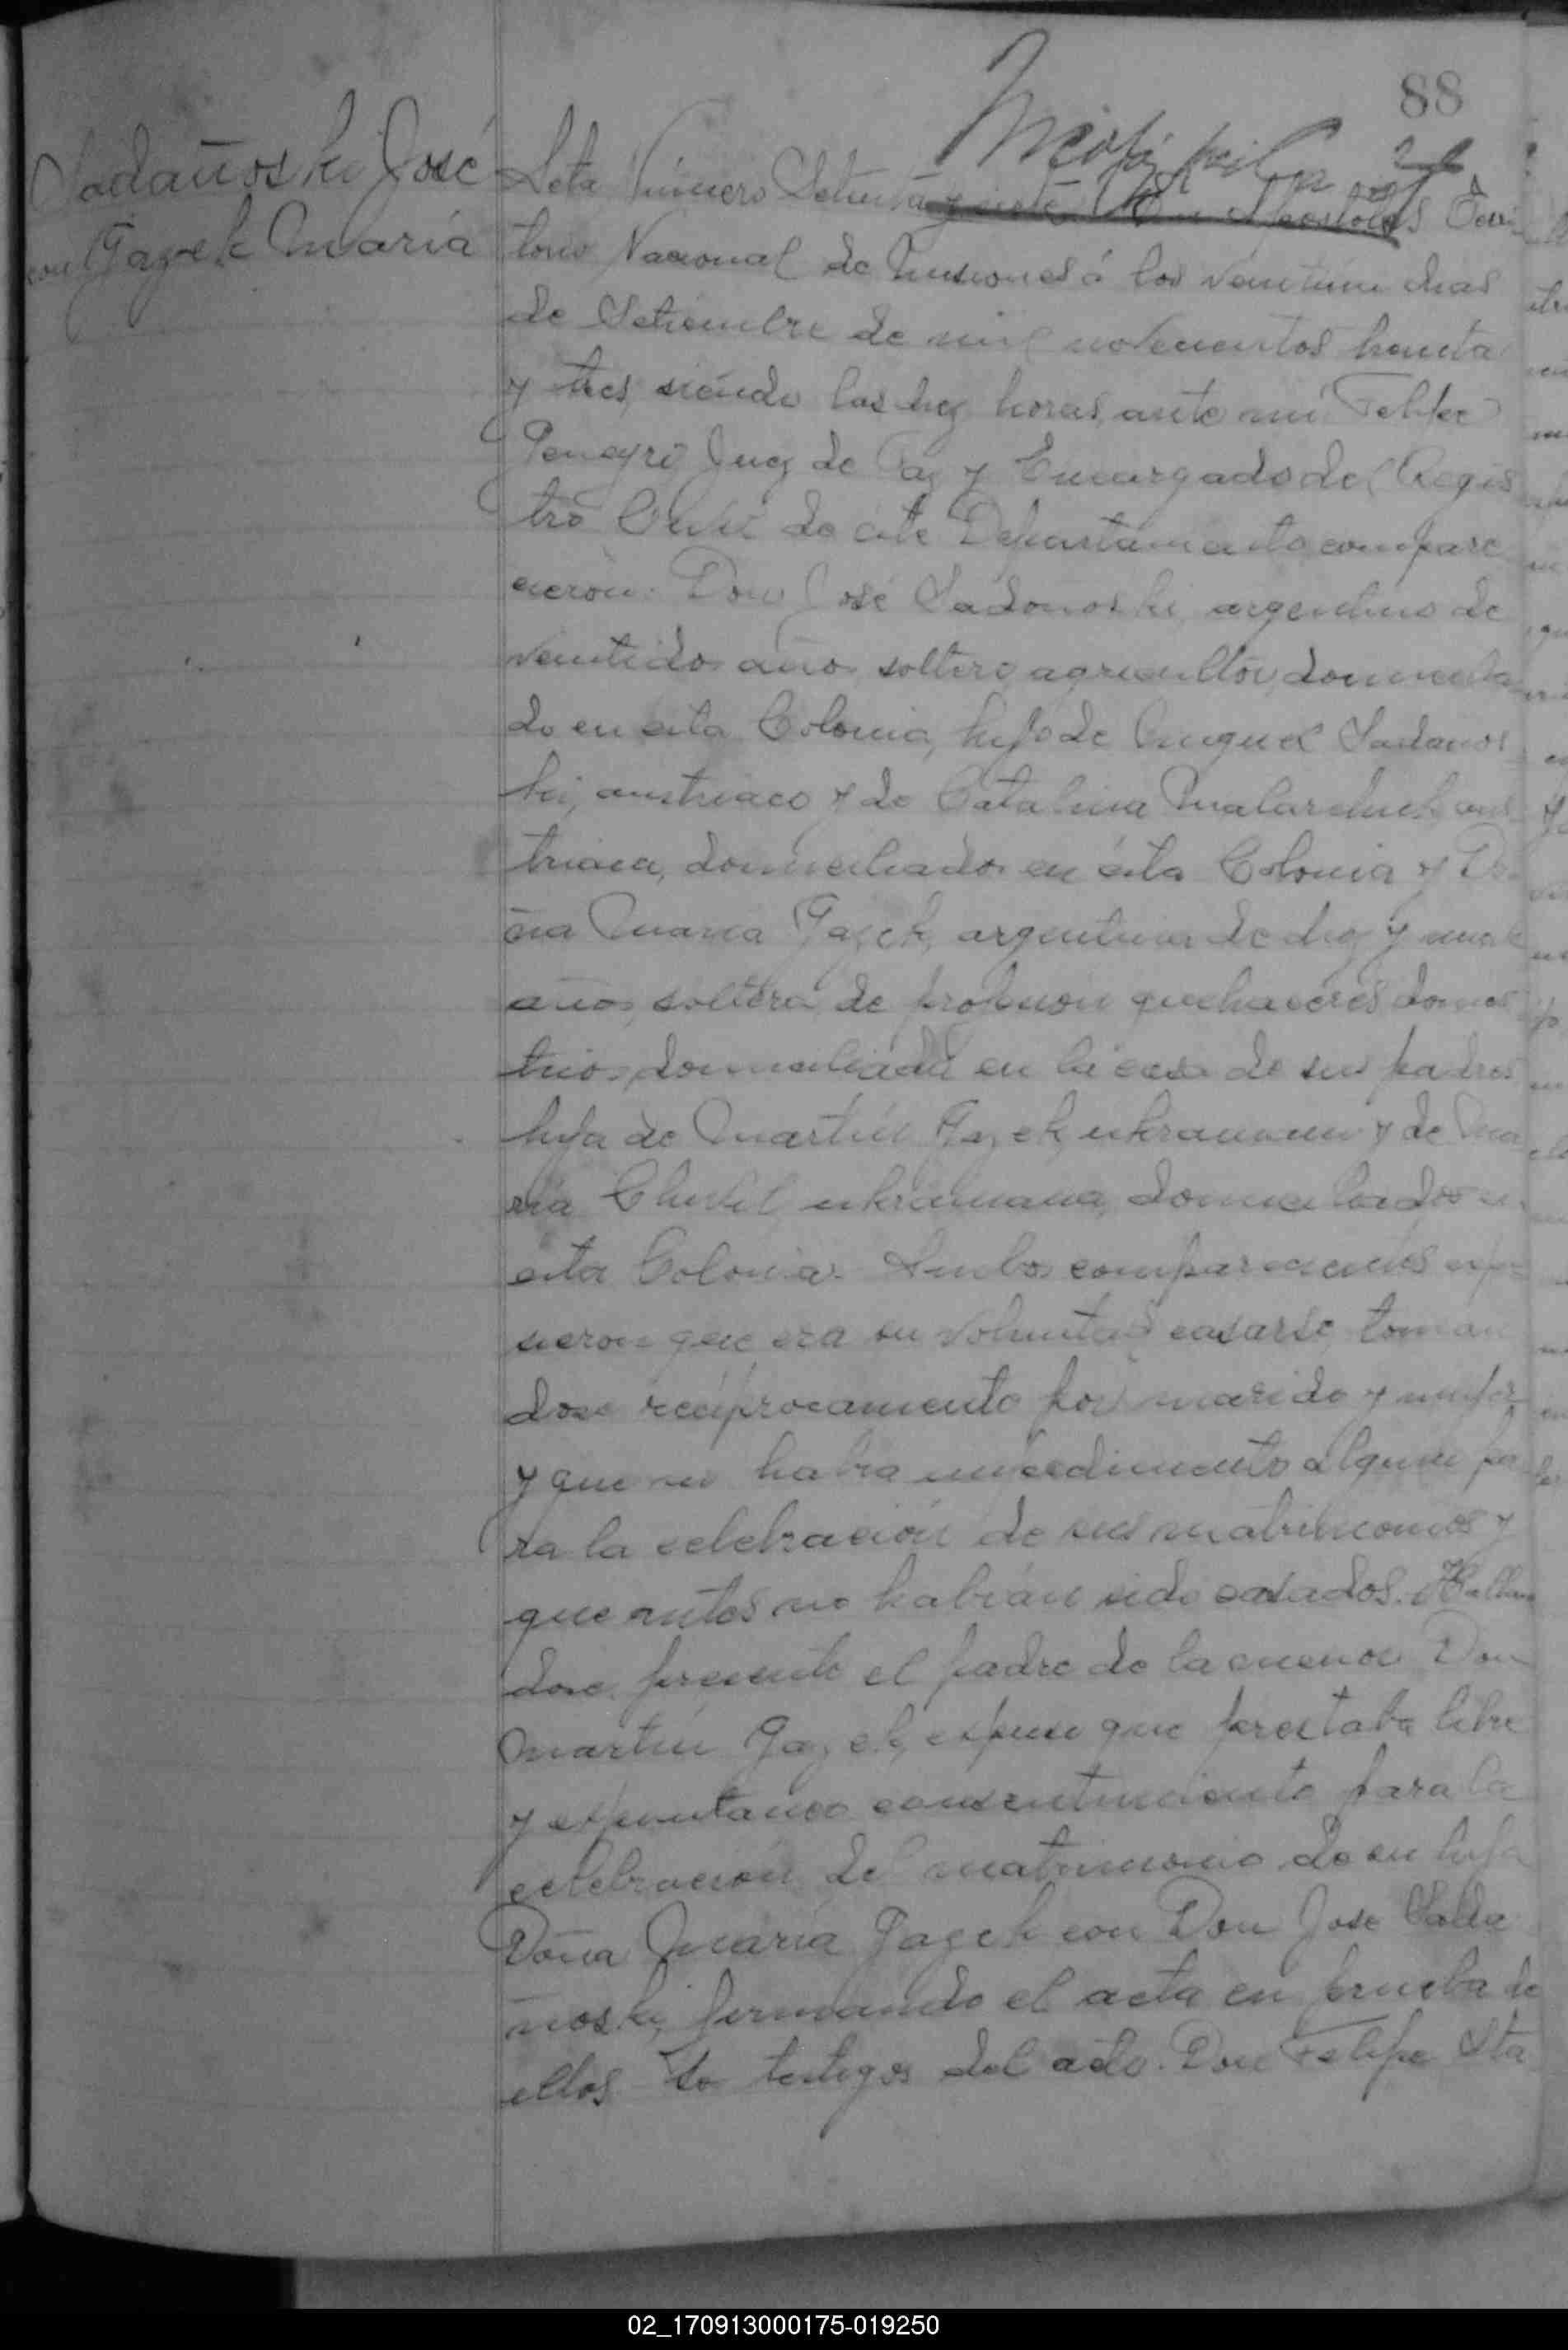 88
Sadañoski José
con Gazek María
Acta Número Setenta y siete En Apostoles Terri
torio Nacional de Misiones á los veintiun dias
de Setiembre de mil novecientos treinta
y tres, siendo las diez horas, ante mi Felipe
Juez de Paz y Encargado del Regis
tro Civil de este Departamento compare
cieron: Don José Sadonoski, argentino de
veintidos años, soltero, agricultor, domicilia
do en esta Colonia, hijo de Miguel Sadanos
ki, austriaco y de Catalina aus
triaca, domiciliados en ésta Colonia y Do
ña Maria Gazek, argentina de diez y nueve
años, soltera, de profesion quehaceres domes
ticos, domiciliada en la casa de sus padres
hija de Martín Gazek, ukraniano y de Ma
ría ukraniana, domiciliados en
esta Colonia. Ambos comparecientes expu
sieron que era su voluntad casarse, toman
dose reciprocamente por marido y mujer
y que no habia impedimento alguno pa
ra la celebración de sus matrimonios y
que antes no habían sido casados. Hallan
dose presente el padre de la menor Don
Martín Gazek, expuso que prestaba libre
y espontaneo consentimiento para la
celebración del matrimonio de su hija
Doña María Gazek con Don José Sada
ñoski, firmando el acta en prueba de
ellos testigos del acto. Don Felipe Sta
02_170913000175-019250